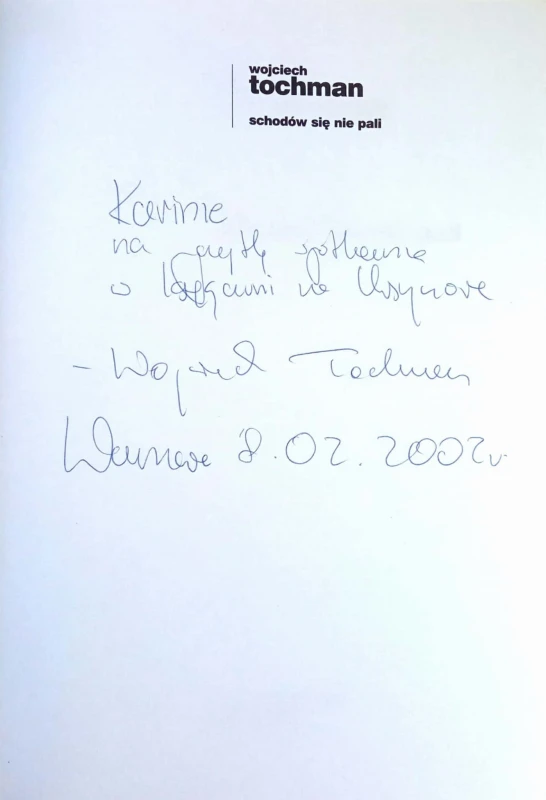 wojciech
tochman
schodów się nie pali
Karinie
na spotkania
w księgarni na Ursynowie
– Wojciech Tochman
Warszawa 8.02.2002 r.